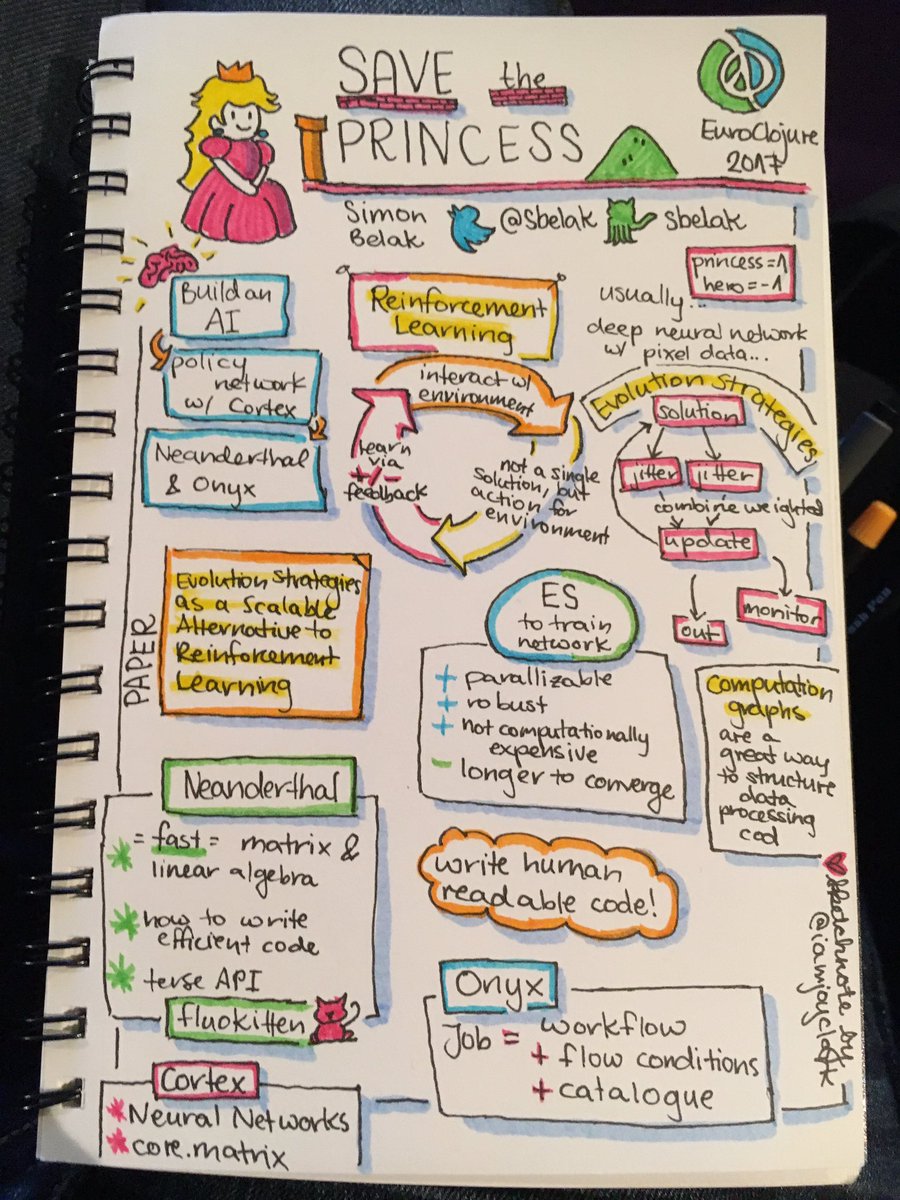 SAVE the
PRINCESS
EuroClojure
2017
Simon
Belak
@sbelak
sbelak
princess=1
hero=-1
Build an
AI
policy
network
w/ Cortex
Neanderthal
& Onyx
Reinforcement
Learning
interact w/
environment
not a single
solution, but
action for
environment
learn
via
+/-
feedback
usually...
deep neural network
w/ pixel data...
Evolution Strategies
solution
jitter jitter
combine weighted
update
out
monitor
PAPER
Evolution Strategies
as a Scalable
Alternative to
Reinforcement
Learning
ES
to train
network
+ parallizable
+ robust
+ not computationally
expensive
- longer to converge
computation
graphs
are a
great way
to structure
data
processing
cod
Neanderthal
= fast = matrix &
linear algebra
* how to write
efficient code
* terse API
fluokitten
write human
readable code!
Onyx
Job = workflow
+ flow conditions
+ catalogue
Cortex
* Neural Networks
* core.matrix
sketchnote by